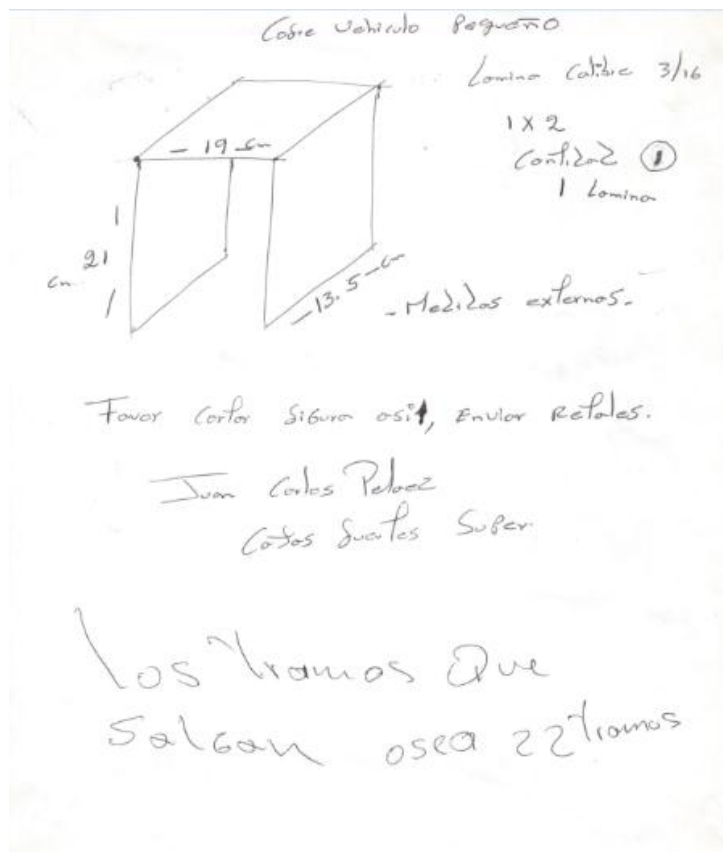 Cofre Vehiculo Pequeño
Lamina Calibre 3/16
1 X 2
Cantidad 1
1 Lamina
- 19 cm
21
cm
- 13.5 - cm
- Medidas externas.
Favor Cortar Figura asi, Enviar Retales.
Juan Carlos Pelaez
Cajas Fuertes Super.
los tramos Que
Salgan osea 22 tramos